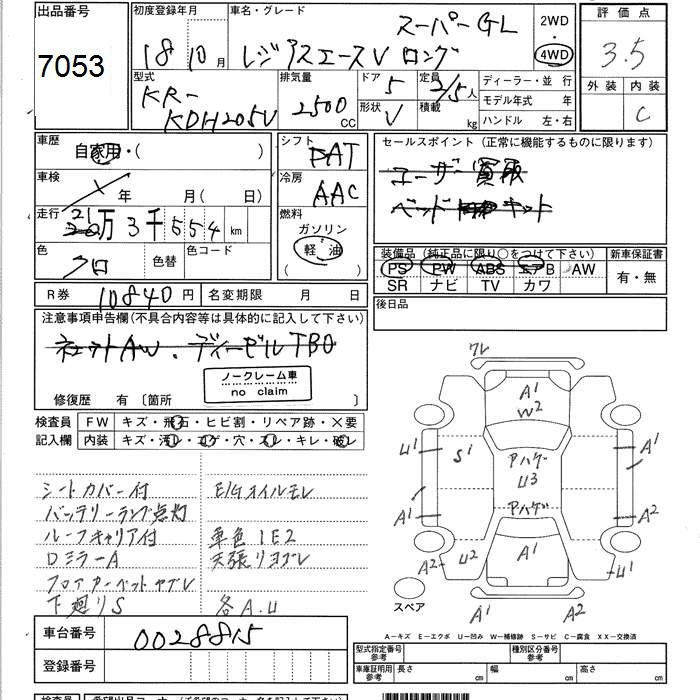 出品番号
7053
初度登録年月
18 10月
車名・グレード
スーパーGL
レジアスエースV ロング
2WD
・
4WD
評価点
3.5
外装 内装
C
型式
KR-
KDH205V
排気量
2500
CC
ドア
5
定員
2/5人
形状
V
積載
kg
ディーラー・並 行
モデル年式 年
ハンドル 左・右
車歴
自家用・( )
シフト
FAT
セールスポイント (正常に機能するものに限ります)
ユーザー買取
車検
年 月( 日)
冷房
AAC
走行
21万3千554km
燃料
ガソリン
軽 油
色
クロ
色替
色コード
装備品 (純正品に限り○をつけて下さい)
PS PW ABS エアB AW
SR ナビ TV カワ
新車保証書
有・無
R券 10840円
名変期限 月 日
後日品
注意事項申告欄(不具合内容等は具体的に記入して下さい)
ディーゼルTBO
ノークレーム車
no claim
修復歴 有 〔箇所 〕
検査員 FW キズ・飛石・ヒビ割・リペア跡・×要
記入欄 内装 キズ・汚レ・コゲ・穴・スレ・キレ・破レ
シートカバー付 E/Gオイルモレ
バッテリーランプ点灯
ルーフキャリア付 車色1E2
DミラーA 天張リヨゴレ
フロアカーペットヤブレ
下廻りS 各A.U
ワレ
A1
W2
U1
S1
アハゲ
U3
アハゲ
A1
A1
A2
A2
U2
A1
U1
スペア
A1
A2
A-キズ E-エクボ U-凹み W-補修跡 S-サビ C-腐食 XX-交換済
車台番号
0028815
登録番号
型式指定番号
参考
種別区分番号
参考
車庫証明用
参考
長さ cm
幅 cm
高さ cm